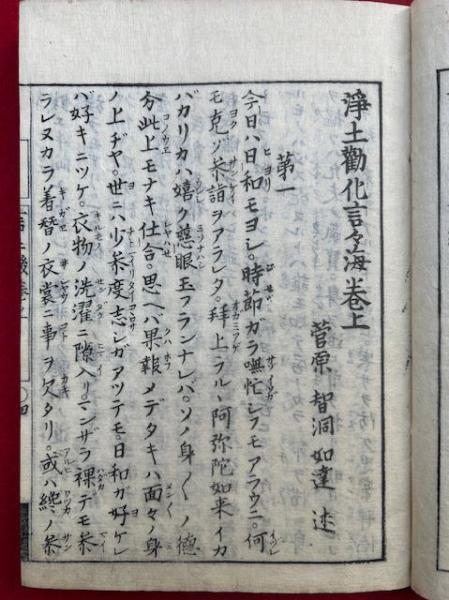 淨土勸化言々海卷上
菅原 智洞如達 述
第一
今日ハ日和モヨシ。時節ガラ嘸忙シフモアラウニ。何
モ克ソ参詣ヲアラレタ。拜上ラルヽ阿弥陀如来イカ
バカリカハ嬉ク慈眼玉フランナレバ。ソノ身〳〵ノ德
分此上モナキ仕合。思ヘバ果報メデタキハ面々ノ身
ノ上ヂヤ。世ニハ少参度志シガアツテモ。日和ガ好ケレ
バ好キニツケ。衣物ノ洗濯ニ隙入リ。マンザラ裸デモ参
ラレヌカラ着替ノ衣裳ニ事ヲ欠タリ。或ハ纔ノ参